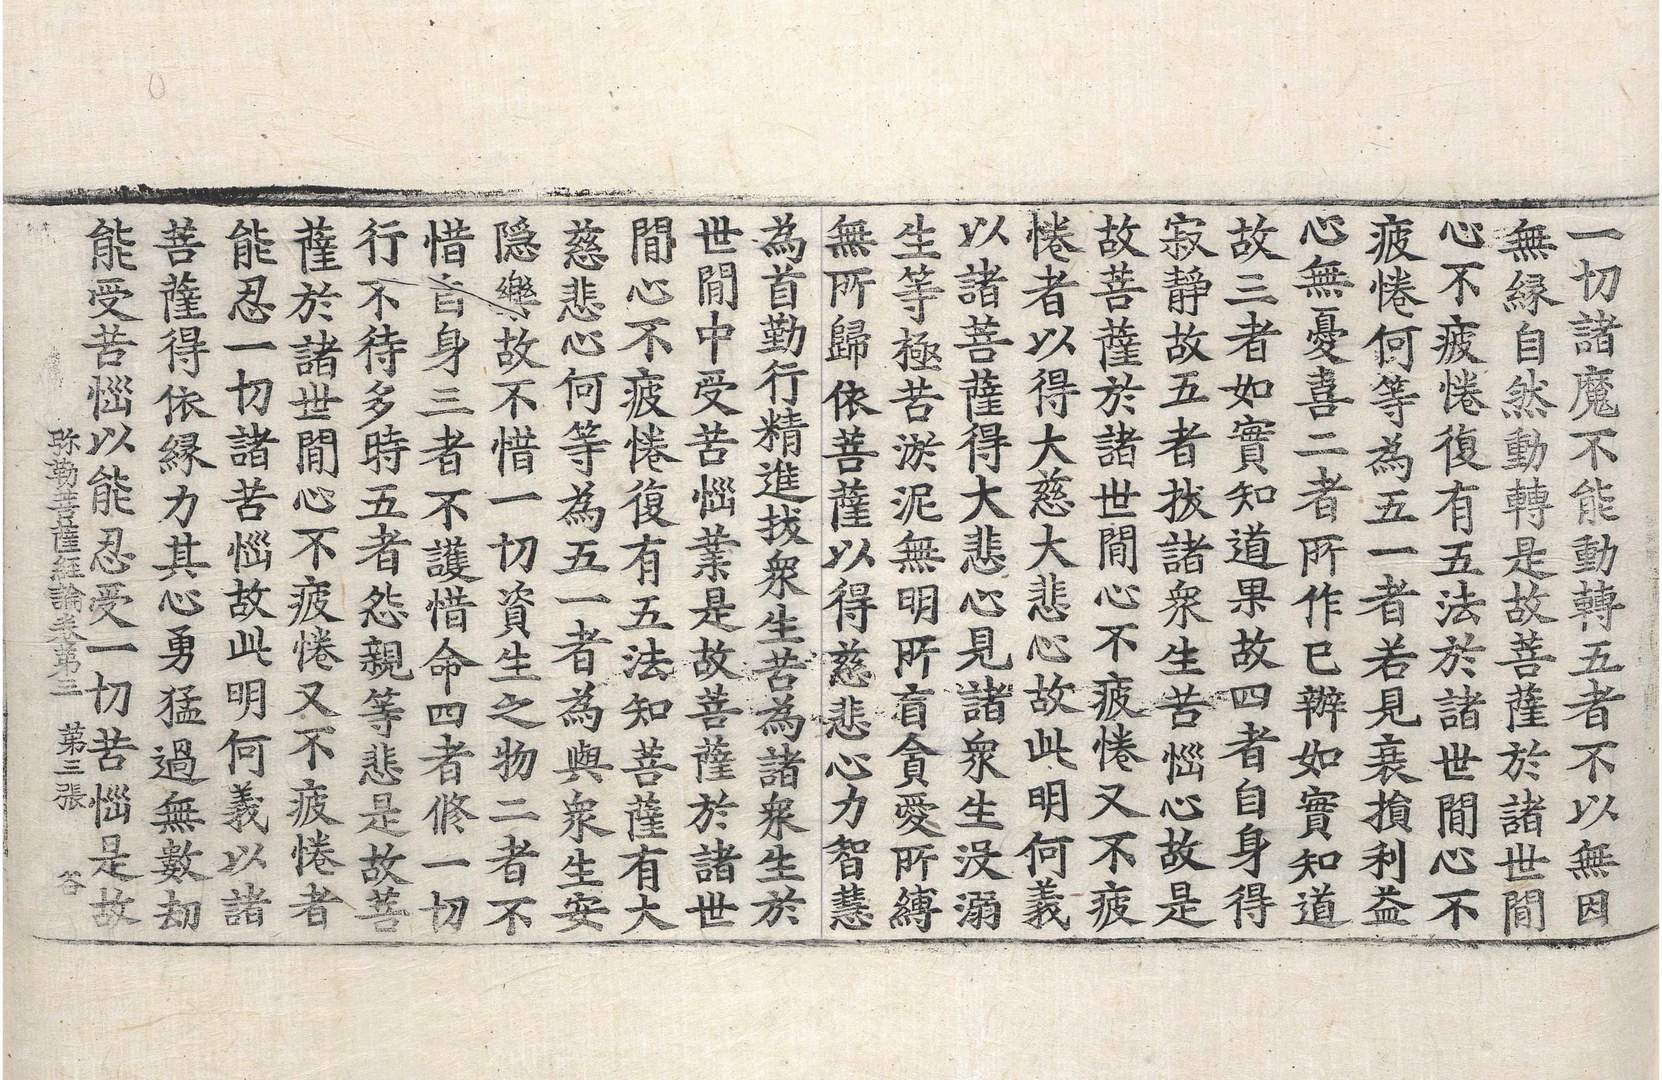 一切諸魔不能動轉五者不以無因
無緣自然動轉是故菩薩於諸世間
心不疲惓復有五法於諸世間心不
疲惓何等為五一者若見衰損利益
心無憂喜二者所作已辦如實知道
故三者如實知道果故四者自身得
寂靜故五者拔諸衆生苦惱心故是
故菩薩於諸世間心不疲惓又不疲
惓者以得大慈大悲心故此明何義
以諸菩薩得大悲心見諸衆生没溺
生等極苦淤泥無明所盲貪愛所縛
無所歸依菩薩以得慈悲心力智慧
為首勤行精進拔衆生苦為諸衆生於
世間中受苦惱業是故菩薩於諸世
間心不疲惓復有五法知菩薩有大
慈悲心何等為五一者為與衆生安
隱樂故不惜一切資生之物二者不
惜自身三者不護惜命四者修一切
行不待多時五者怨親等悲是故菩
薩於諸世間心不疲惓又不疲惓者
能忍一切諸苦惱故此明何義以諸
菩薩得依緣力其心勇猛過無數劫
能受苦惱以能忍受一切苦惱是故
弥勒菩薩經論卷第三 第三張 答